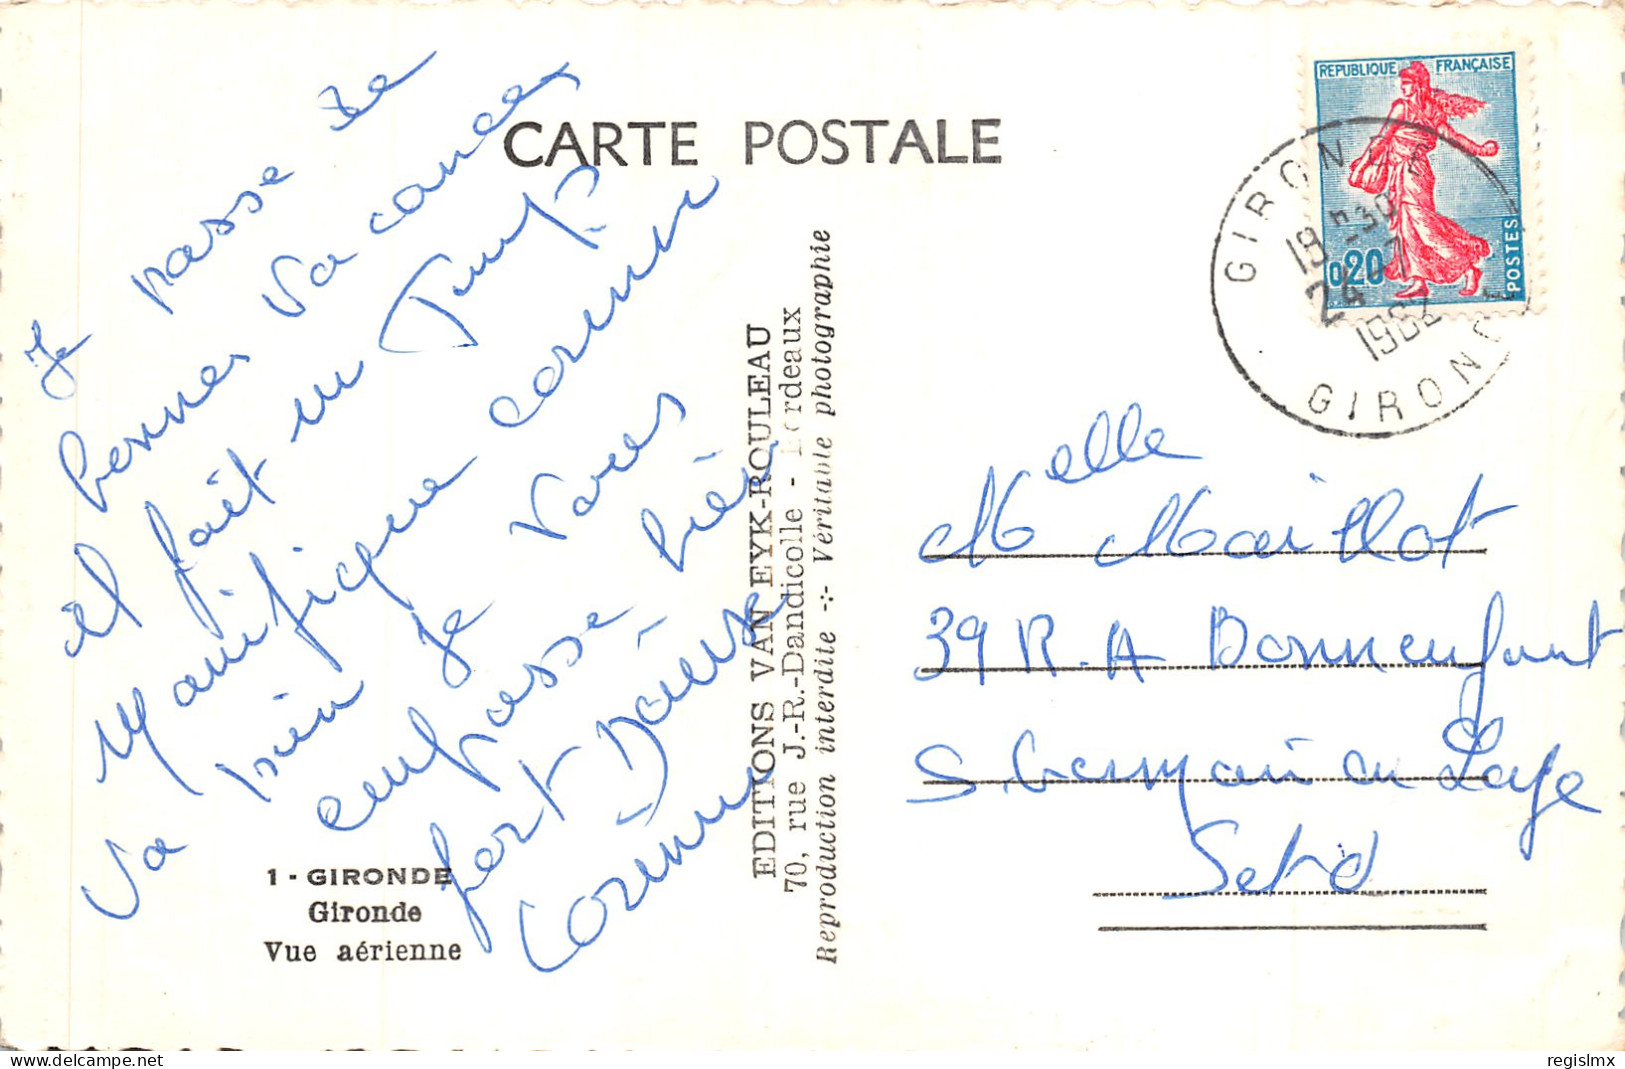 CARTE POSTALE
Je passe de
bonnes Vacances
il fait un Temps
Magnifique corinne
Va bien je Vous
embrasse bien
fort Danièle
Corinne
1 - GIRONDE
Gironde
Vue aérienne
EDITIONS VAN EYK-ROULEAU
70, rue J.-R.-Dandicolle - Bordeaux
Reproduction interdite -:- Véritable photographie
REPUBLIQUE FRANÇAISE
0,20
POSTES
GIRONDE
19 30
24 -7
GIRONDE
Melle Maillot
39 R. A Bonnenfant
S Germain en Laye
S et O.
Delcampe.net
regislmx